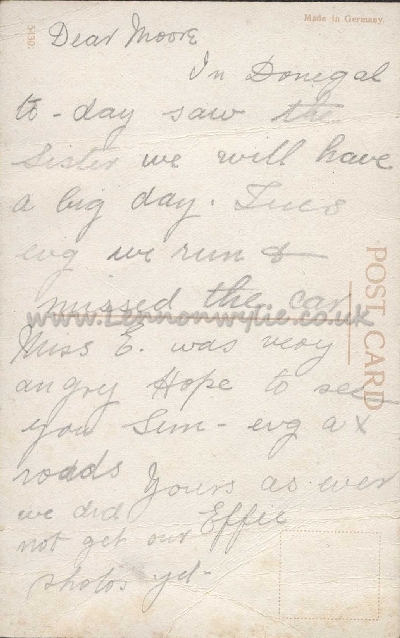 5430.
Made in Germany.
Dear Moore
In Donegal
to-day saw the
Sister we will have
a big day. Tues
evg we run &
missed the car
www.Lennonwylie.co.uk
Miss E. was very
angry Hope to see
you Sun- evg at X
roads
Yours as ever
Effie
we did
not get our
photos yet-
POST CARD